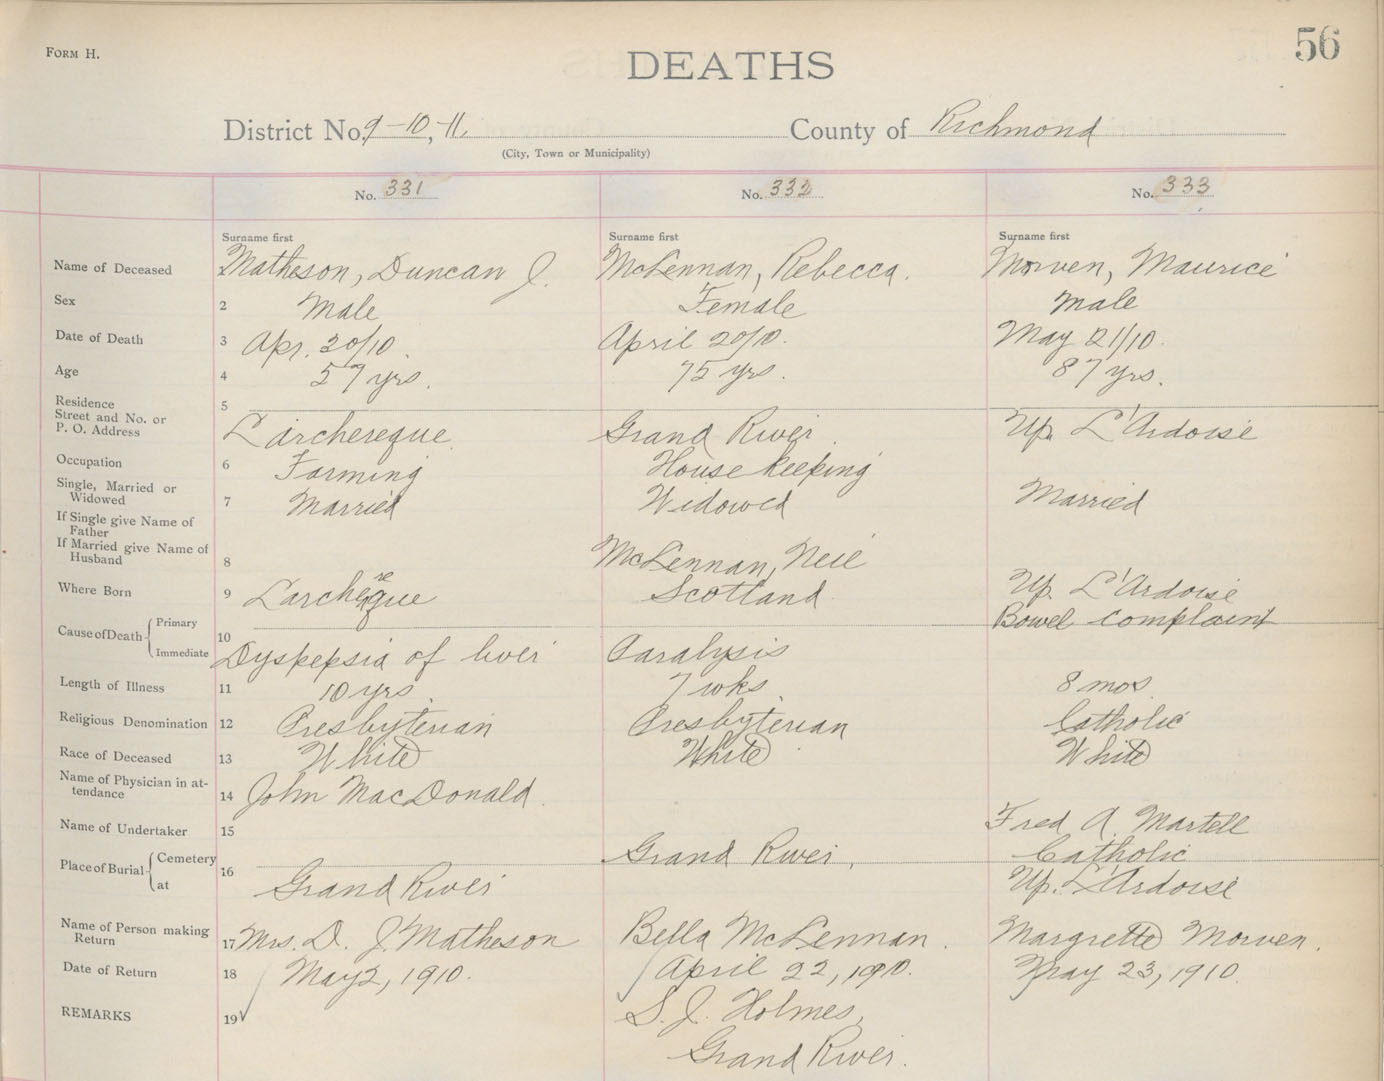 FORM H.
DEATHS
56
District No. 9-10, 11. County of Richmond
(City, Town or Municipality)
No. 331 No. 332 No. 333
Surname first Surname first Surname first
Name of Deceased Matheson, Duncan J. McLennan, Rebecca. Morven, Maurice
Sex 2 Male Female Male
Date of Death 3 Apr. 30/10. April 20/10. May 21/10.
Age 4 57 yrs. 75 yrs. 87 yrs.
Residence 5
Street and No. or
P. O. Address L'archeveque Grand River. Up. L'Ardoise
Occupation 6 Farming House Keeping
Single, Married or
Widowed 7 Married Widowed Married
If Single give Name of
Father
If Married give Name of
Husband 8 McLennan, Neil
Where Born 9 Larcheveque Scotland Up. L'Ardoise
Cause of Death Primary Bowel complaint
10
Immediate Dyspepsia of liver Paralysis
Length of Illness 11 10 yrs. 7 wks. 8 mos.
Religious Denomination 12 Presbyterian Presbyterian Catholic
Race of Deceased 13 White White White
Name of Physician in at-
tendance 14 John MacDonald.
Name of Undertaker 15 Fred A. Martell
Place of Burial Cemetery 16 Grand River, Catholic
at Grand River Up. L'Ardoise
Name of Person making
Return 17 Mrs. D. J. Matheson Bella McLennan. Margrette Morven.
Date of Return 18 May 2, 1910. April 22, 1910. May 23, 1910.
REMARKS 19 S. J. Holmes,
Grand River.